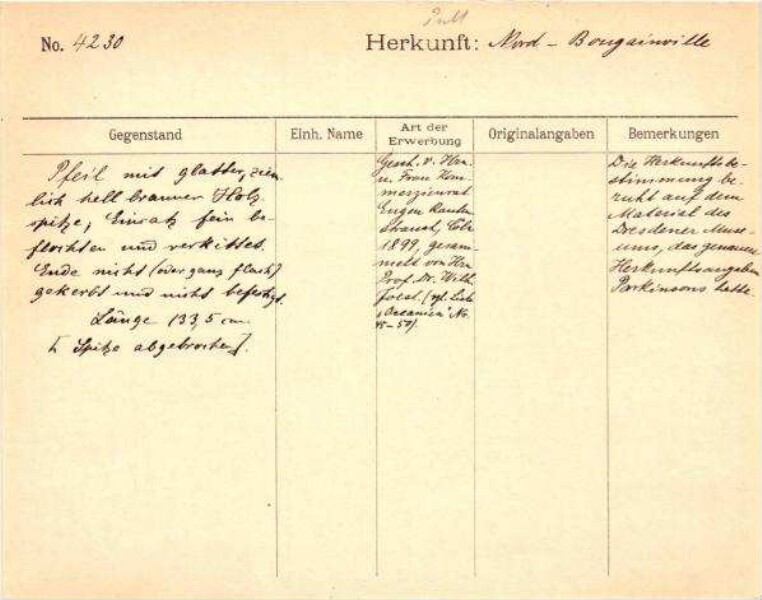 No. 4230
Herkunft: Nord - Bougainville
Gegenstand
Einh. Name
Art der Erwerbung
Originalangaben
Bemerkungen
Pfeil mit glatter, ziem-
lich hell brauner Holz-
spitze, Einsatz fein be-
flochten und verkittet.
Ende nicht (oder ganz flach)
gekerbt und nicht befestigt.
Länge 133,5 cm.
[Spitze abgebrochen].
Gesch. v. Hrn.
u. Frau Kom-
merzienrat
Eugen Rauten-
strauch, Cöln
1899, gesam-
melt von Hrn
Prof. Dr. Wilh.
Joest. (vgl. Liste
"Oceanien" No.
45-50).
Die Herkunftsbe-
stimmung be-
ruht auf dem
Material des
Dresdener Muse-
ums, das genauere
Herkunftsangaben
Parkinsons hatte.